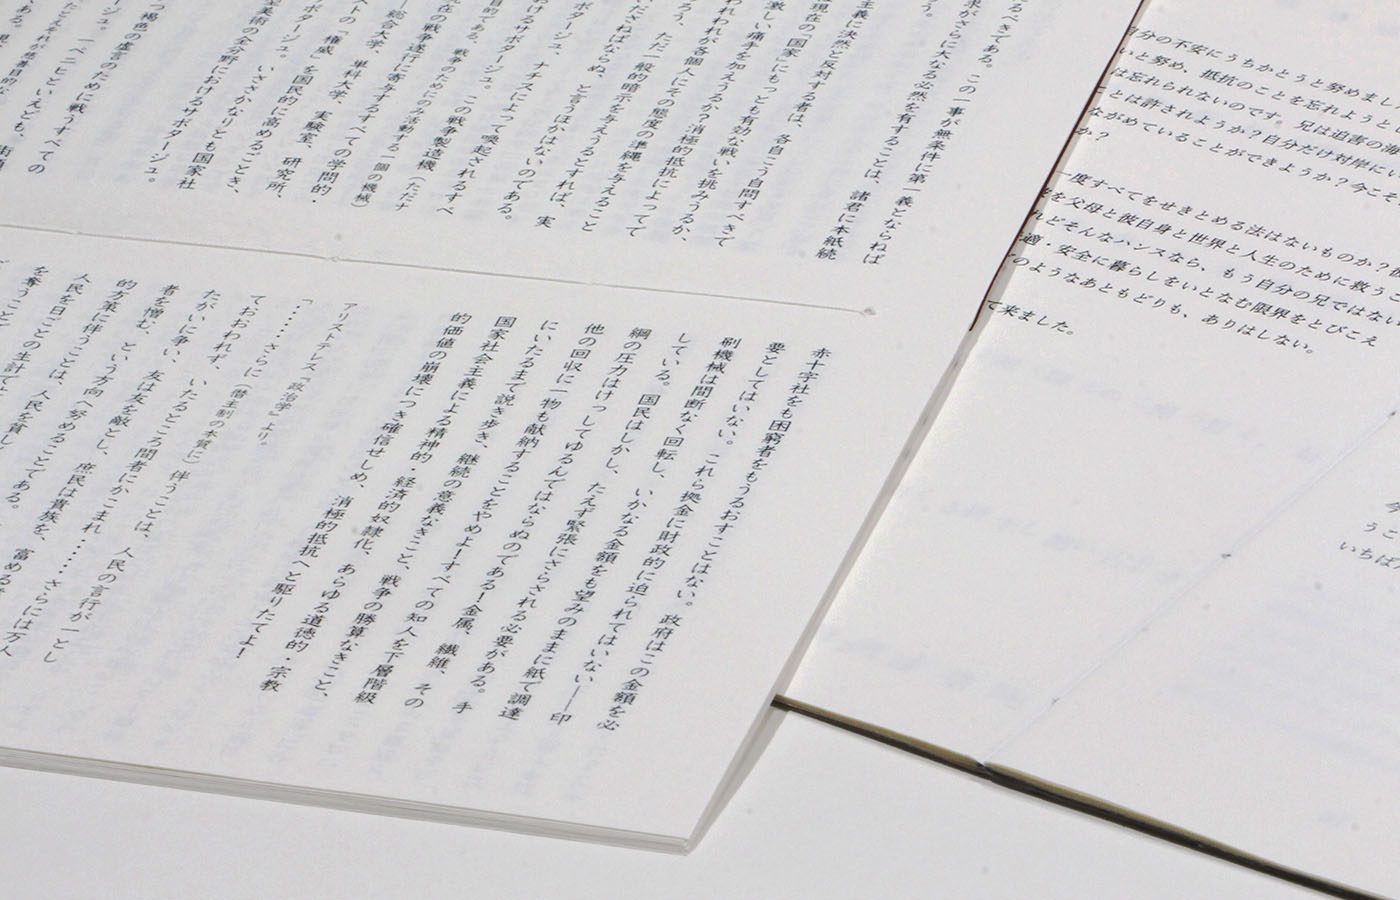 るべきである。この一事が無条件に第一義とならねば
求がさらに大なる必然を有することは、諸君に本紙続
う。
主義に決然と反対する者は、各自こう自問すべきで
現在の「国家」にもっとも有効な戦いを挑みうるか、
激しい痛手を加えうるか？消極的抵抗によって
われわれが各個人にその態度の準縄を与えること
ろう、ただ一般的暗示を与えうるとすれば、実
ださねばならぬ、と言うほかはないのである。
ボタージュ、ナチスによって喚起されるすべ
おけるサボタージュ。この戦争製造機（ただナ
目的である、戦争のためにのみ活動する一個の機械）
現在の戦争遂行に寄与するすべての学問的・
――総合大学、単科大学、実験室、研究所、
ストの「権威」を国民的に高めるごとき、
タージュ。いささかなりとも国家社
美術の全分野におけるサボタージュ。
褐色の虚言のために戦うすべての
。一ペニヒといえども、街頭
赤十字社をも困窮者をもうるおすことはない。政府はこの金額を必
要としてはいない。これら拠金に財政的に迫られてはいない――印
刷機械は間断なく回転し、いかなる金額をも望みのままに紙で調達
している。国民はしかし、たえず緊張にさらされる必要がある。手
綱の圧力はけっしてゆるんではならぬのである！金属、繊維、その
他の回収に一物も献納することをやめよ！すべての知人を下層階級
にいたるまで説き歩き、継続の意義なきこと、戦争の勝算なきこと、
国家社会主義による精神的・経済的奴隷化、あらゆる道徳的・宗教
的価値の崩壊につき確信せしめ、消極的抵抗へと駆りたてよ！
アリストテレス『政治学』より。
「……さらに（僭主制の本質に）伴うことは、人民の言行が一とし
ておおわれず、いたるところ間者にかこまれ……さらには万人
たがいに争い、友は友を敵とし、庶民は貴族を、富める
者を憎む、という方向へ努めることである。
的方策に伴うことは、人民を貧し
人民を日ごとの生計で
を奪うこと
自分の不安にうちかとうと努めまし
いと努め、抵抗のことを忘れようと
は忘れられないのです。兄は迫害の
とは許されようか？自分だけ対岸に
ながめていることができようか？今こそ
か？
一度すべてをせきとめる法はないものか？
を父母と彼自身と世界と人生のために救う
れどそんなハンスなら、もう自分の兄ではない
適・安全に暮らしをいとなむ限界をとびこえ
どのようなあともどりも、ありはしない。
て来ました。
うこ
いちば